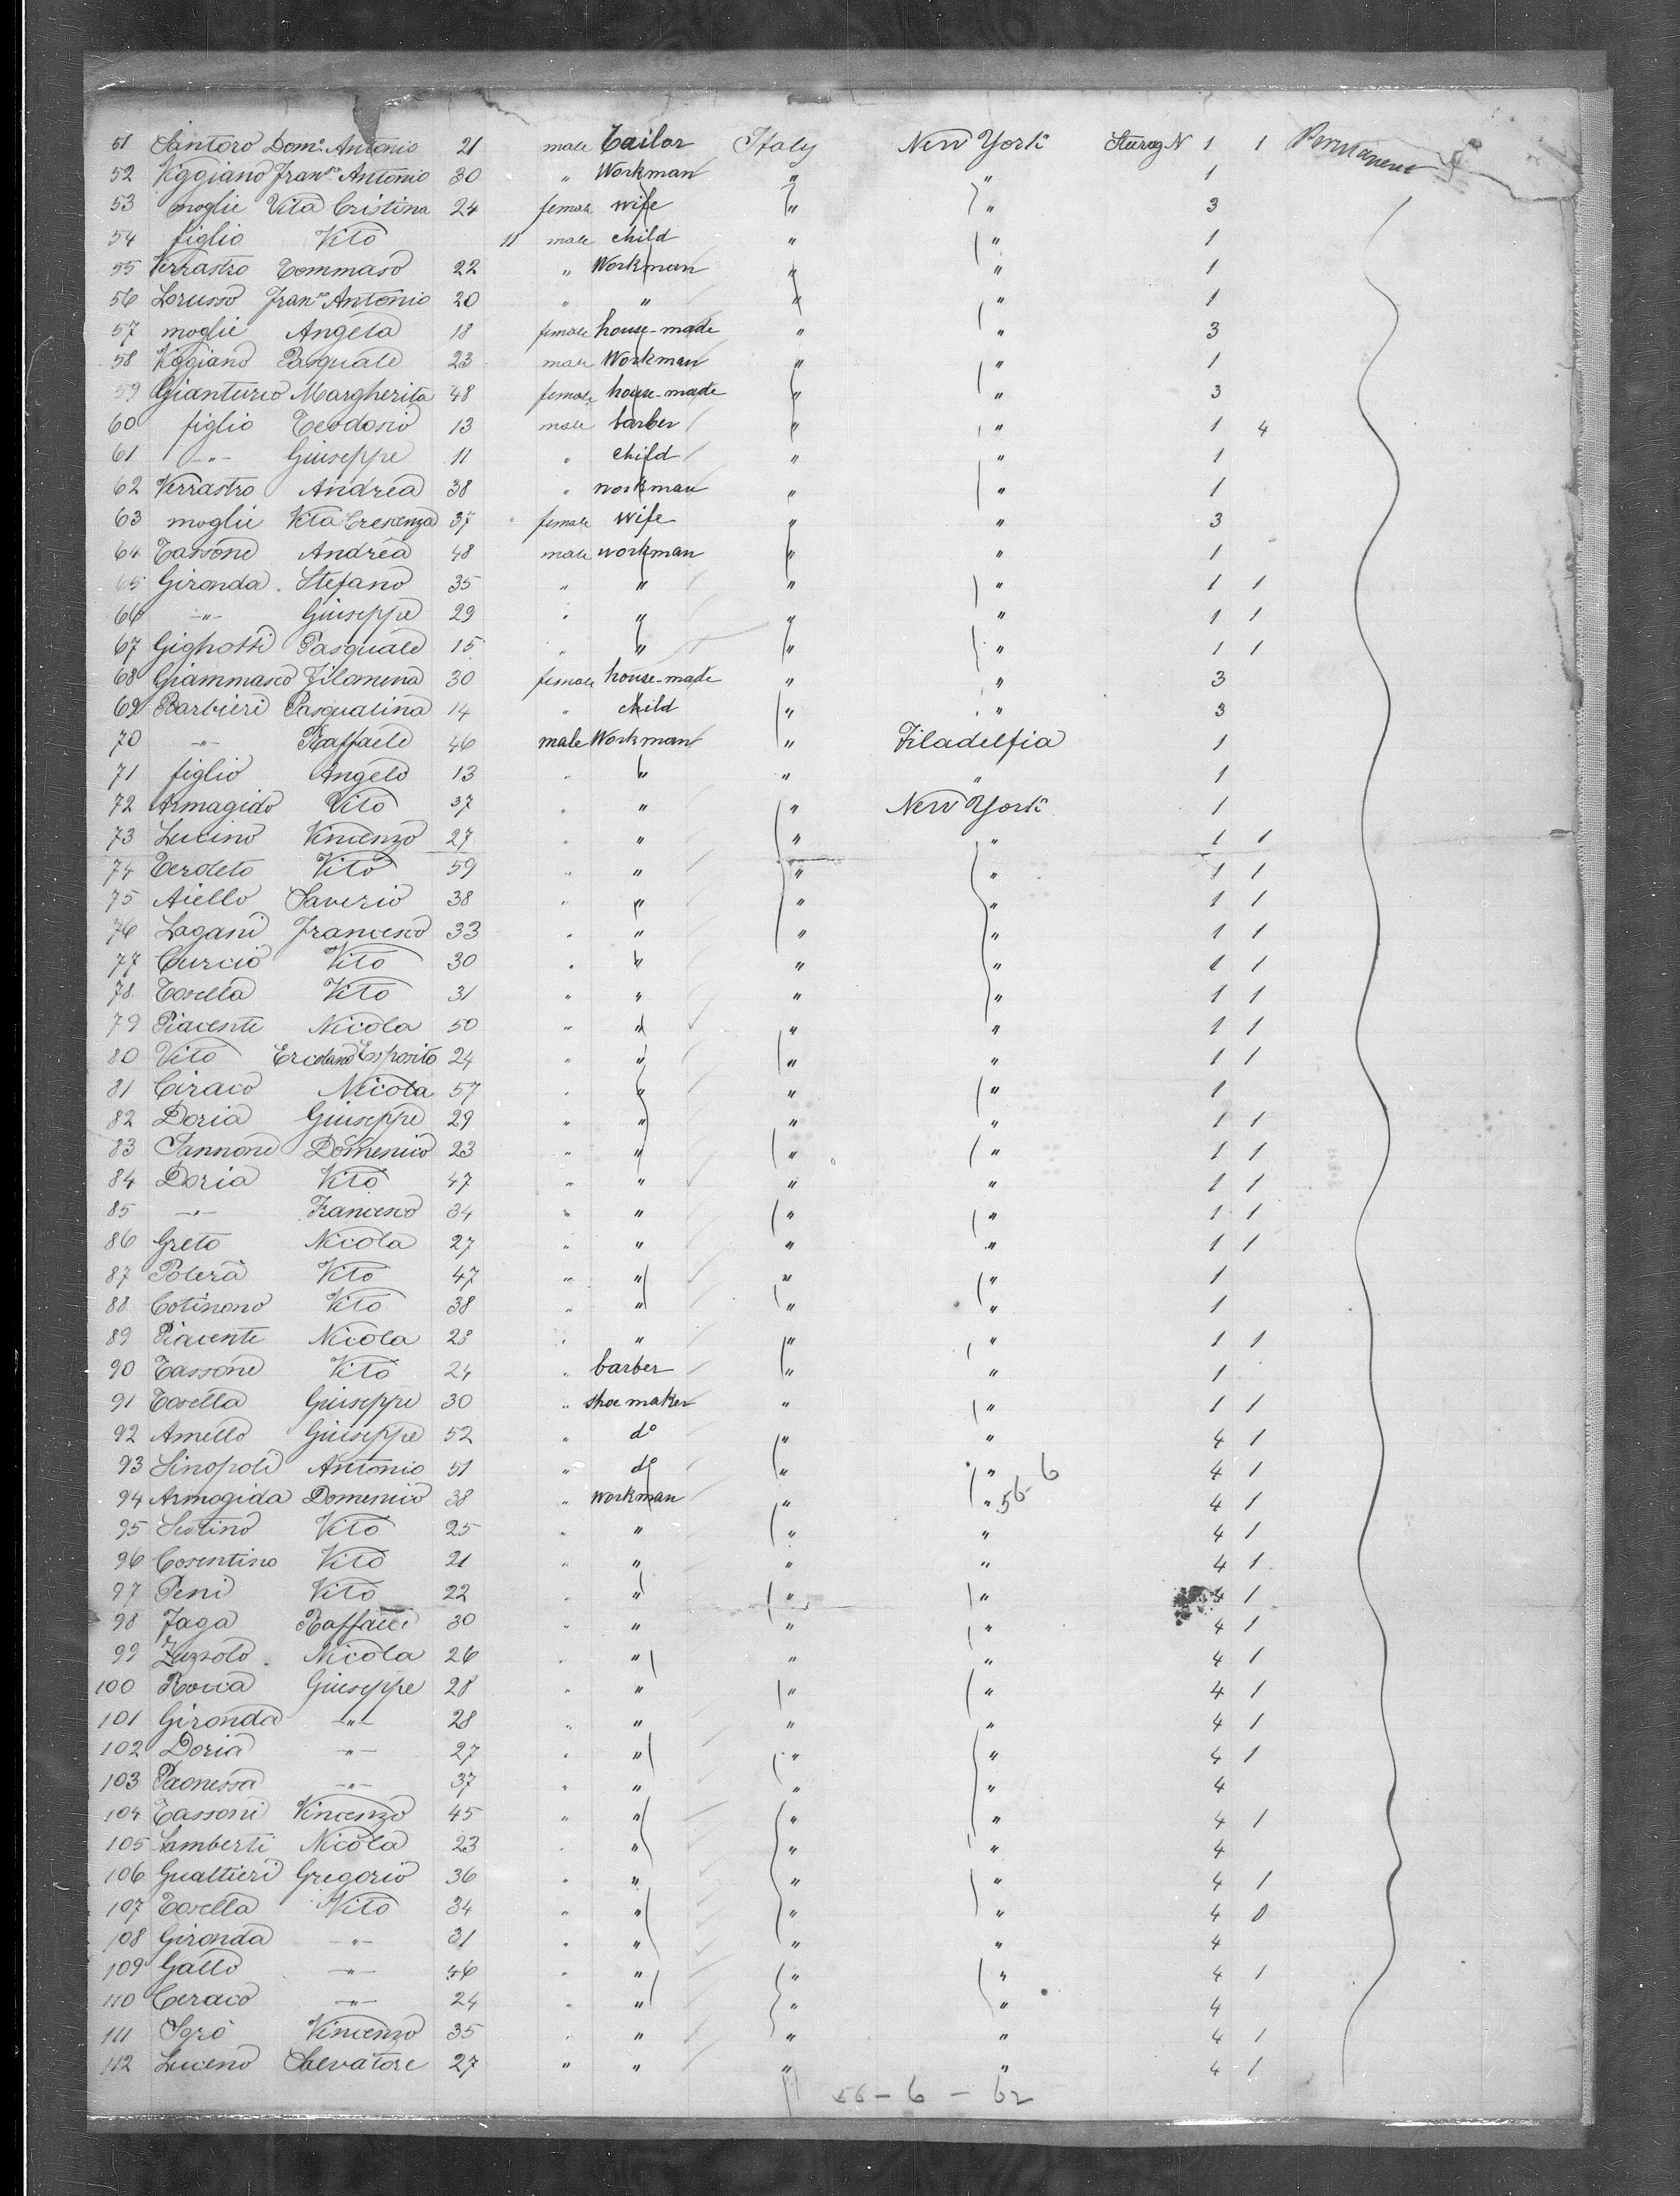 51 Santoro Dom.co Antonio 21 male Tailor Italy New York Steerag N 1 1 Permanent
52 Viggiano Fran.co Antonio 30 " Workman " " 1
53 moglie Vita Cristina 24 female wife " " 3
54 figlio Vito 11 male child " " 1
55 Verrastro Tommaso 22 " Workman " " 1
56 Lorusso Fran.co Antonio 20 " " " " 1
57 moglie Angela 18 female house-made " " 3
58 Viggiano Pasquale 23 male Workman " " 1
59 Gianturco Margherita 48 female house-made " " 3
60 figlio Teodosio 13 male barber " " 1 4
61 -"- Giuseppe 11 " child " " 1
62 Verrastro Andrea 38 " workman " " 1
63 moglie Vita Crescenza 37 female wife " " 3
64 Tassone Andrea 48 male workman " " 1
65 Gironda Stefano 35 " " " " 1 1
66 -"- Giuseppe 29 " " " " 1 1
67 Gighotti Pasquale 15 " " " " 1 1
68 Giammasco Filomena 30 female house-made " " 3
69 Barbieri Pasqualina 14 " child " " 3
70 -"- Raffaele 46 male Workman " Filadelfia 1
71 figlio Angelo 13 " " " " 1
72 Armagido Vito 37 " " " New York 1
73 Lucino Vincenzo 27 " " " " 1 1
74 Vito 59 " " " " 1 1
75 Aiello Saverio 38 " " " " 1 1
76 Lagani Francesco 33 " " " " 1 1
77 Curcio Vito 30 " " " " 1 1
78 Tosella Vito 31 " " " " 1 1
79 Piacente Nicola 50 " " " " 1 1
80 Vito Ercolano Esposito 24 " " " " 1 1
81 Ciraco Nicola 57 " " " " 1
82 Doria Giuseppe 29 " " " " 1 1
83 Iannone Domenico 23 " " " " 1 1
84 Doria Vito 47 " " " " 1 1
85 -"- Francesco 34 " " " " 1 1
86 Greto Nicola 27 " " " " 1 1
87 Polera Vito 47 " " " " 1
88 Cotinono Vito 38 " " " " 1
89 Piacente Nicola 28 " " " " 1 1
90 Tassone Vito 24 " barber " " 1
91 Tosella Giuseppe 30 " shoe maker " " 1 1
92 Amello Giuseppe 52 " do " " 4 1
93 Sinopoli Antonio 51 " do " " 6 4 1
94 Armogida Domenico 38 " workman " " 56 4 1
95 Scotino Vito 25 " " " " 4 1
96 Cosentino Vito 21 " " " " 4 1
97 Peni Vito 22 " " " " 4 1
98 Faga Raffaele 30 " " " " 4 1
99 Zuzzolo Nicola 26 " " " " 4 1
100 Rocca Giuseppe 28 " " " " 4 1
101 Gironda -"- 28 " " " " 4 1
102 Doria -"- 27 " " " " 4 1
103 Paonessa -"- 37 " " " " 4
104 Tassoni Vincenzo 45 " " " " 4 1
105 Lamberti Nicola 23 " " " " 4
106 Gualtieri Gregorio 36 " " " " 4 1
107 Tosella Vito 34 " " " " 4 0
108 Gironda -"- 31 " " " " 4
109 Gallo -"- 46 " " " " 4 1
110 Ceraco -"- 24 " " " " 4
111 Sgrò Vincenzo 35 " " " " 4 1
112 Luceno Salvatore 27 " " " " 4 1
56-6-62